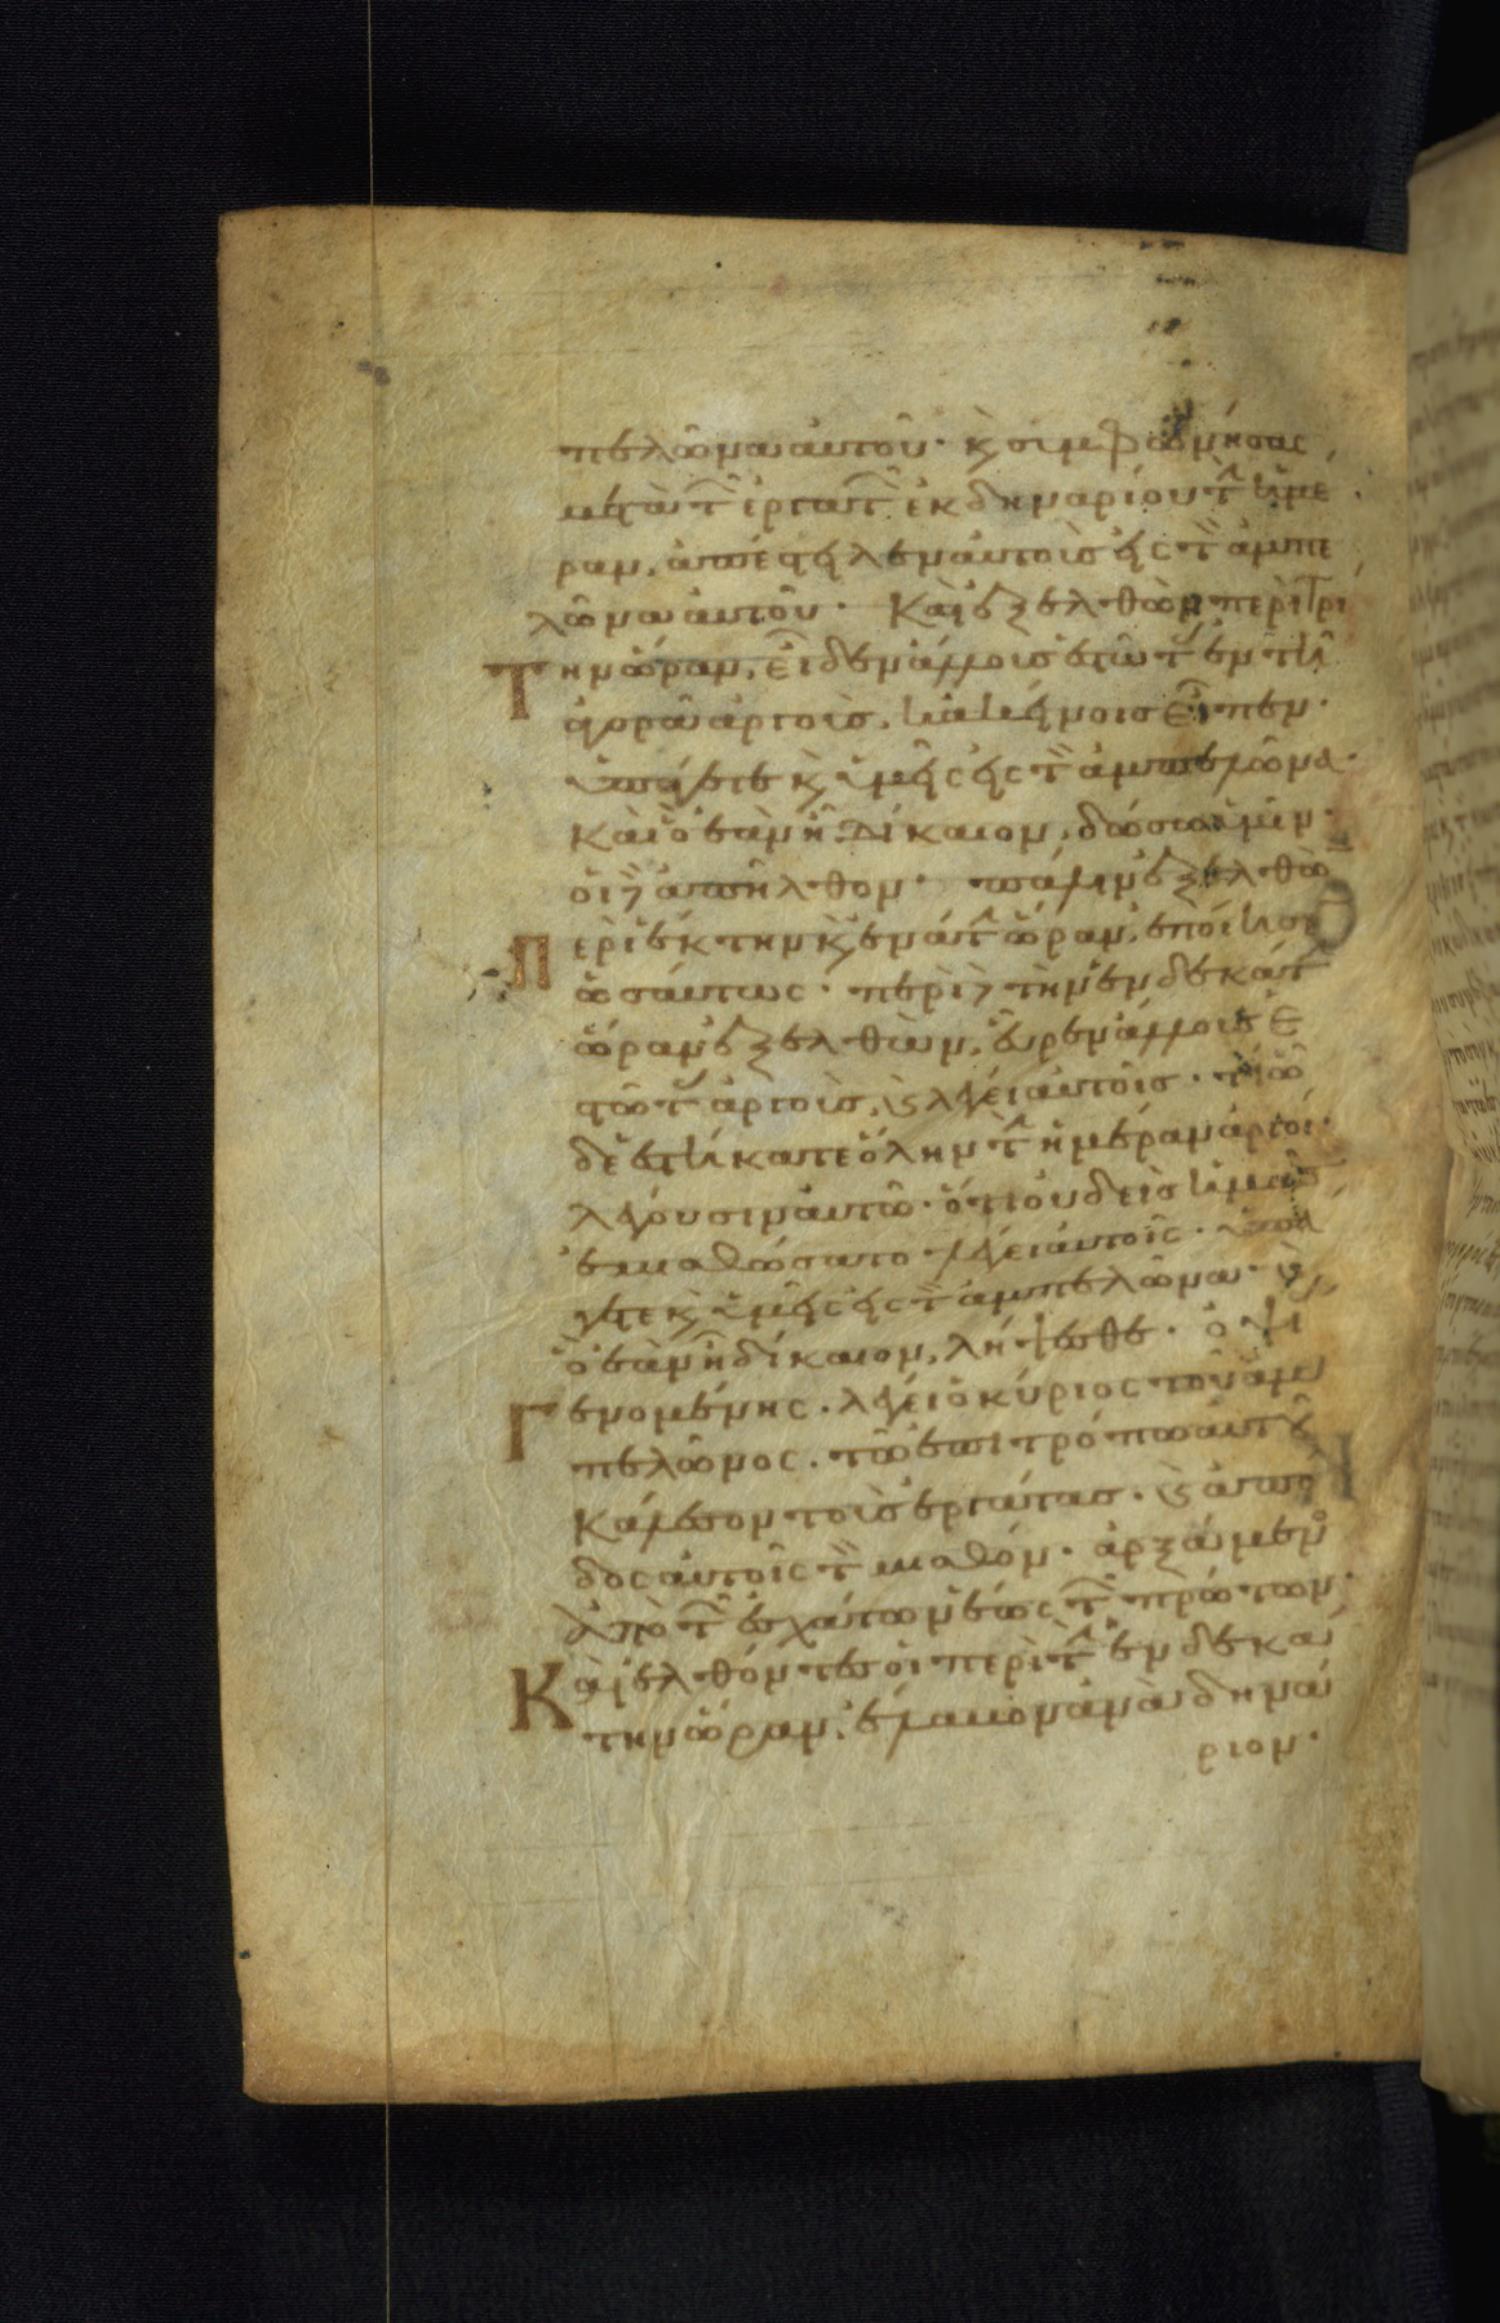 πελῶνα αὐτοῦ· κ̀ συμφωνήσας
μετὰ τ̑ ἐργατ̑ ἐκ δηναρίου τ̑ ἡμέ
ραν, ἀπέστειλεν αὐτοὺς εἰς τ̏ ἀμπε
λῶνα αὐτοῦ· Καὶ ἐξελθὼν περὶ τρί
την ὥραν, εἶδεν ἄλλους ἑστῶτ ἐν τῆ
ἀγορᾶ ἀργοὺς, κἀκείνοις εἶπεν·
ὑπάγετε κ̀ ὑμεῖς εἰς τ̏ ἀμπελῶνα·
Καὶ ὃ ἐὰν ἦ δίκαιον, δώσω ὑμῖν·
οἱ δὲ ἀπῆλθον· πάλιν ἐξελθὼ
περὶ ἕκτην κ̀ ἐνάτ̑ ὥραν, ἐποίησε
ὡσαύτως· περὶ δὲ τὴν ἑνδεκάτ
ὥραν ἐξελθὼν, εὗρεν ἄλλους ἑ
στῶτ ἀργοὺς, κ̀ λέγει αὐτοῖς· τί ὧ
δε ἑστήκατε ὅλην τ̑ ἡμέραν ἀργοί·
λέγουσιν αὐτῶ· ὅτι οὐδεὶς ἡμᾶς
ἐμισθώσατο· λέγει αὐτοῖς· ὑπά
γετε κ̀ ὑμεῖς εἰς τ̏ ἀμπελῶνα· κ̀
ὃ ἐὰν ἦ δίκαιον, λήψεσθε· ὀψί
Γενομένης· λέγει ὁ κύριος τοῦ ἀμ
πελῶνος· τῶ ἐπιτρόπω αὐτοῦ
Κάλεσον τοὺς ἐργάτας· κ̀ ἀπό
δος αὐτοῖς τ̏ μισθόν· ἀρξάμεν
ἀπὸ τ̑ ἐσχάτων ἕως τ̑ πρώτων·
Καὶ ἐλθόντες οἱ περὶ τ̑ ἑνδεκά
την ὥραν, ἔλαβον ἀνὰ δηνά
ριον·